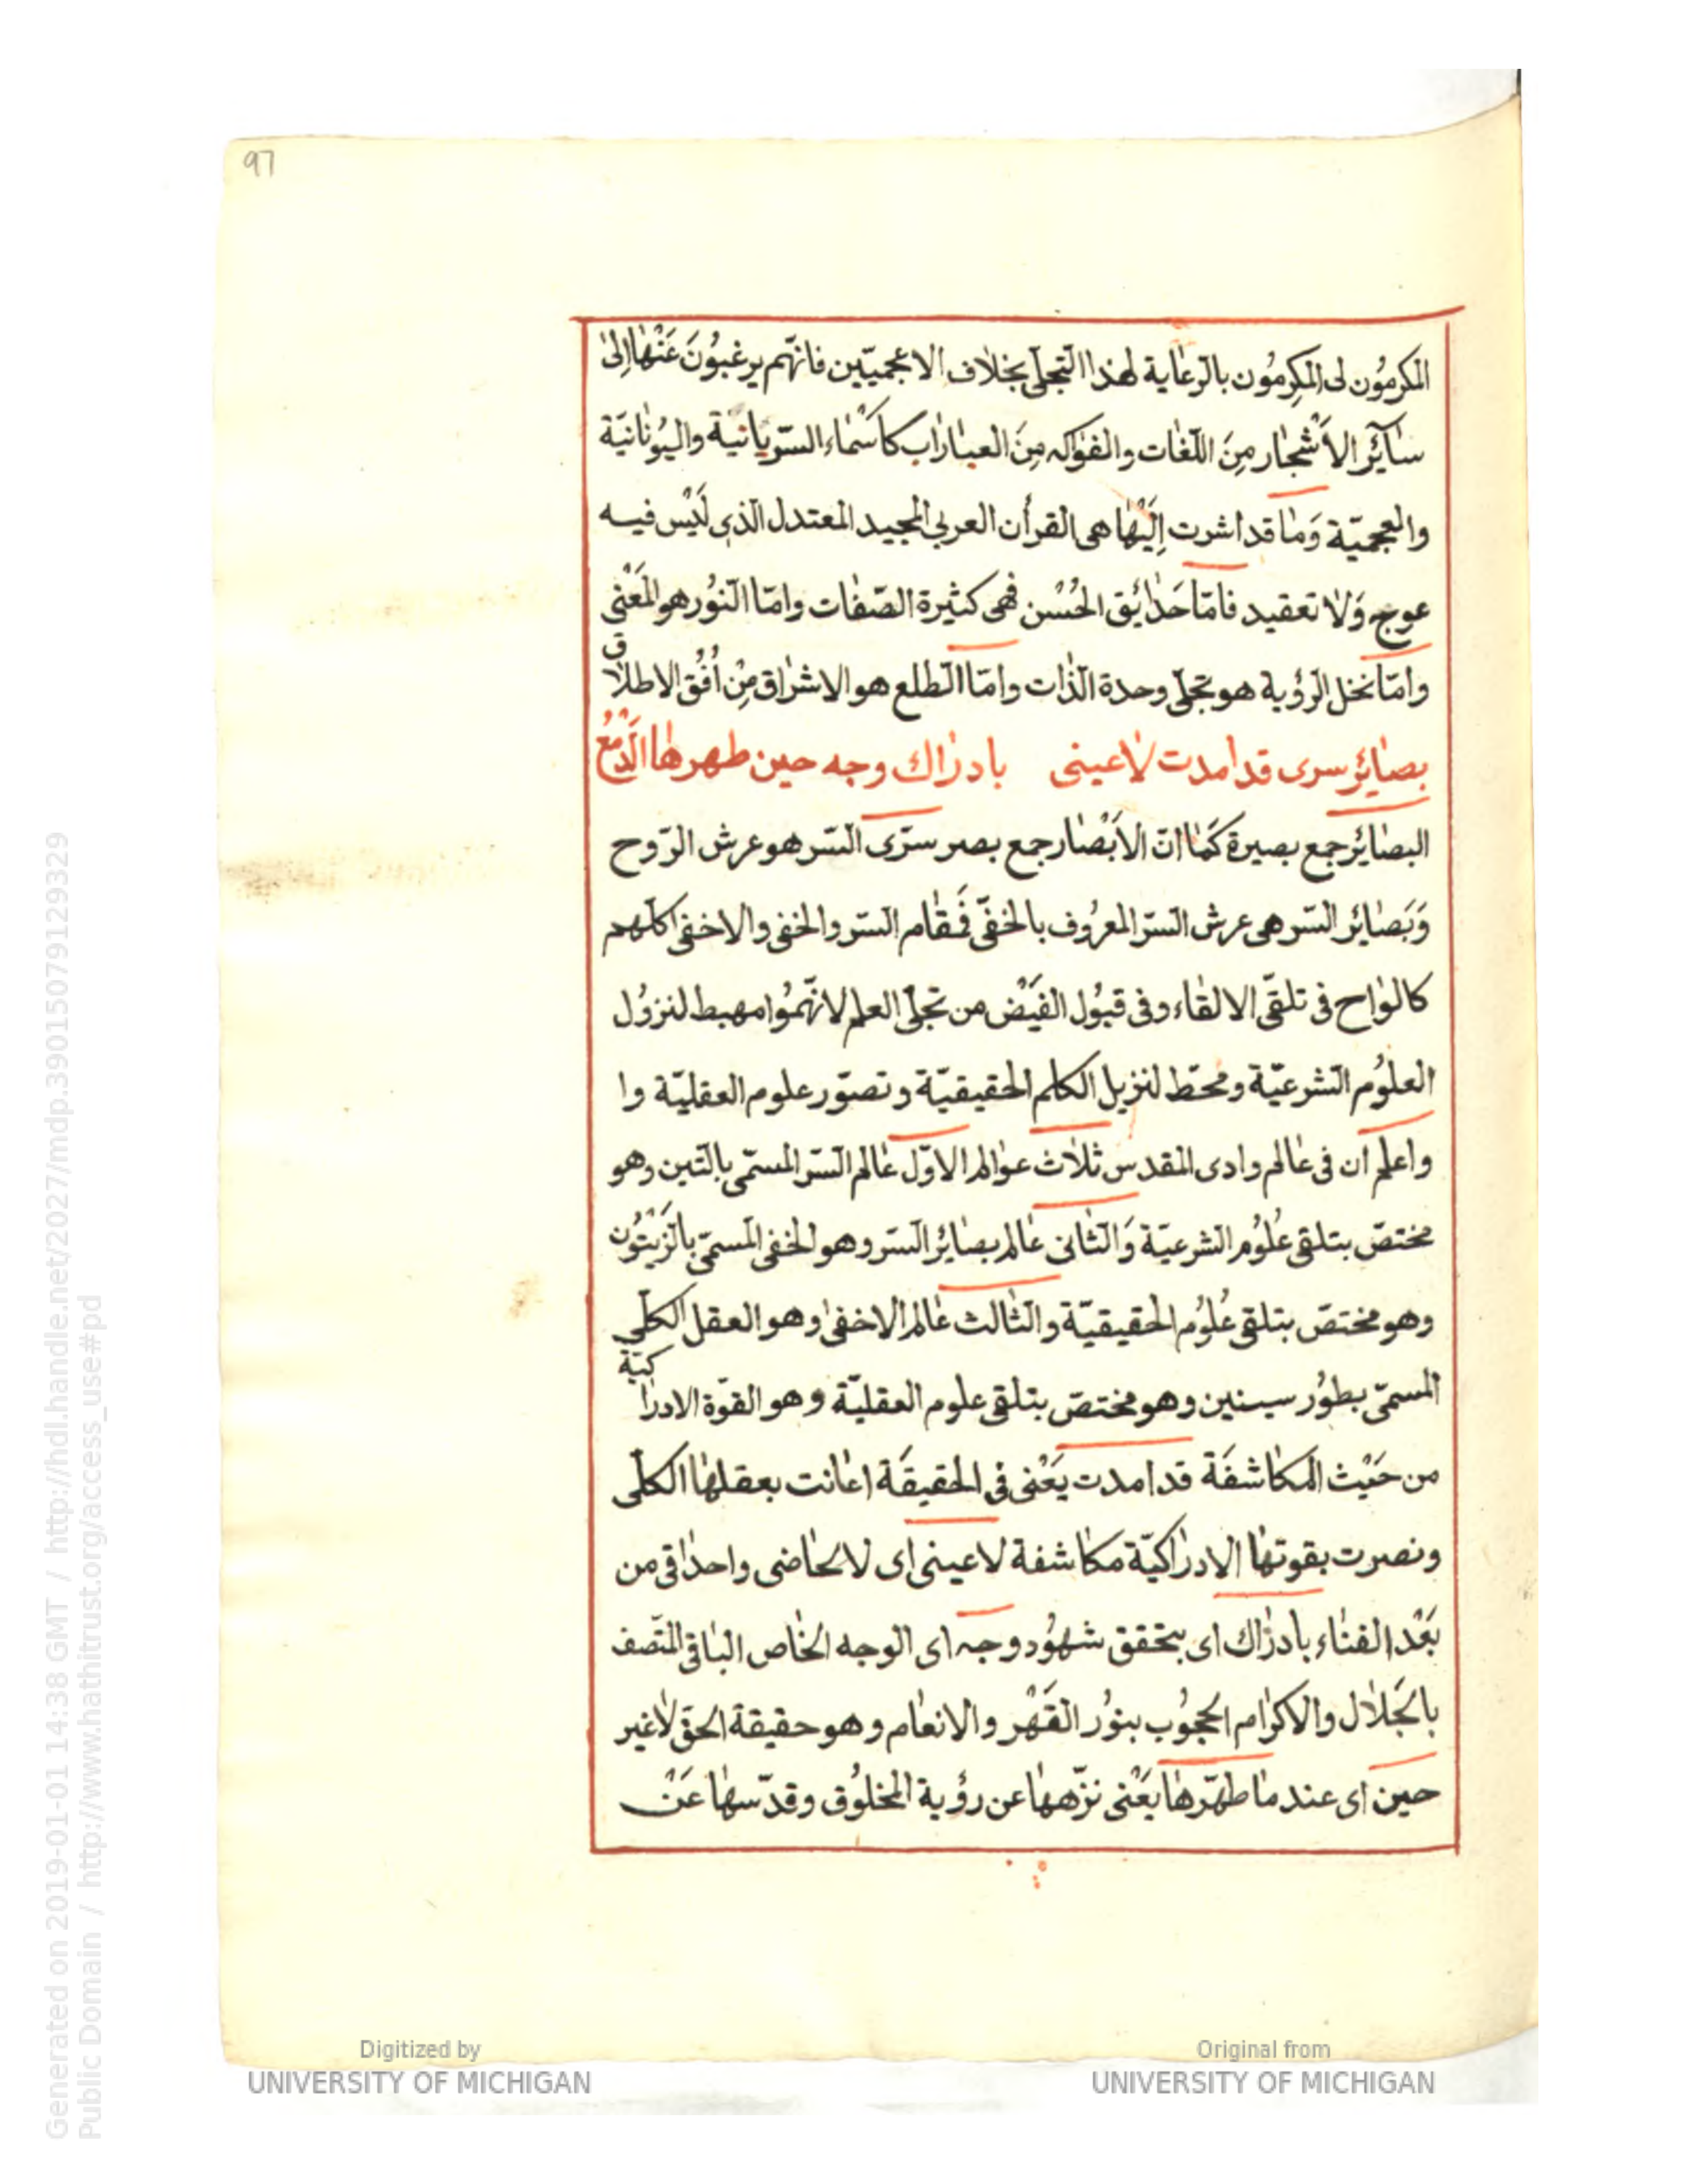 97
المكرمُون لى المكرِمُون بالرعاية لهذا التجلّى بخلاف الاعجميّين فانّهم يرغبُونَ عَنْهٰا اِلىٰ
سٰائِر الاَشْجٰار مِنَ اللّغٰات والفوٰاكه مِنَ العبٰاراٰب كاَسْمٰاء السّريانيّة واليُونٰانيّة
والعجميّة وَمٰا قد اشرت اِلَيْهٰا هى القرأن العربى المجيد المعتدل الّذى لَيْس فيه
عوج وَلٰا تعقيد فامّا حَدٰائِق الحُسْن فهى كثيرة الصّفٰات وامّا النّوُر هو المَعْنى
وامّا نخل الرّؤية هو تجلّى وحدة الذّات وامّا الطلع هو الاشرٰاق مِنْ اُفُق الاطلاٰق
بصٰائِر سرى قد امدت لاٰعينى بادرٰاك وجه حين طهرهٰا الدَّمْعُ
البصٰائِر جمع بصيرة كَمٰا انّ الاَبْصٰار جمع بصر سرّى السّر هو عرش الرّوح
وَبَصٰائِر السّر هى عرش السّر المعرُوف بالخفّى فَمقٰام السّر والخفى والاخفى كلّهم
كالوٰاح فى تلقّى الالقٰاء وفى قبُول الفَيْض من تجلّى العلم لانّهمُوا مهبط لنزوُل
العلوُم الشرعيّة ومحطّ لنزيل الكلم الحقيقيّة وتصوّر علوم العقليّة وا
واعلم ان فى عٰالم وادى المقدس ثلاٰث عوٰالم الاوّل عٰالم السّر المسمّى بالتّين وهو
مختصّ بتلقى عُلوُم الشرعيّة وَالثّانى عٰالم بصٰائِر السّر وهو الخفى المسمّى بالزَيْتوُن
وهو مختصّ بتلقى عُلوُم الحقيقيّة والثّالث عٰالم الاخفىٰ وهو العقل الكلّى
المسمّى بطوُر سينين وهو مختصّ بتلقى علوم العقليّة وهو القوّة الادرٰاكيّة
من حَيْث المكاشفَة قد امدت يَعْنى فى الحقيقَة اعٰانت بعقلهٰا الكلّى
ونصرت بقوتهٰا الادرٰاكيّة مكاشفة لاعينى اى لالحٰاضى واحدٰاقى من
بَعْد الفنٰاء بادرٰاك اى بتحقق شهُود وجه اى الوجه الخٰاص البٰاقى المتّصف
بالجَلاٰل والاكرٰام المحجوُب بنوُر القَهْر والانعٰام وهو حقيقة الحقّ لاٰغير
حين اى عند مٰا طهّرهٰا يَعْنى نزّههٰا عن رؤية المخلوُق وقدّسهٰا عَنْ
Generated on 2019-01-01 14:38 GMT / http://hdl.handle.net/2027/mdp.39015079129329
Public Domain / http://www.hathitrust.org/access_use#pd
Digitized by
UNIVERSITY OF MICHIGAN
Original from
UNIVERSITY OF MICHIGAN